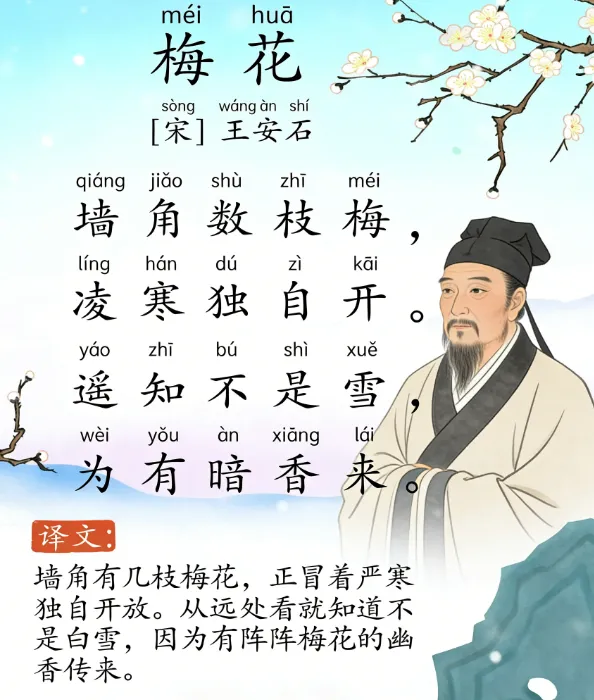 méi huā
梅花
sòng wáng àn shí
[宋] 王安石
qiáng jiǎo shù zhī méi
墙角数枝梅，
líng hán dú zì kāi
凌寒独自开。
yáo zhī bú shì xuě
遥知不是雪，
wèi yǒu àn xiāng lái
为有暗香来。
译文：
墙角有几枝梅花，正冒着严寒
独自开放。从远处看就知道不
是白雪，因为有阵阵梅花的幽
香传来。